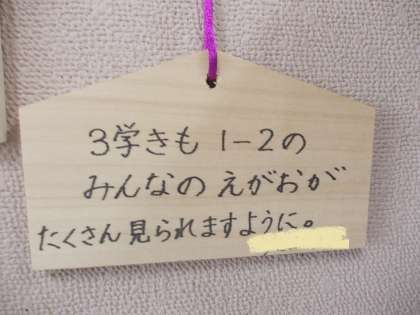 3学きも 1-2の
みんなの えがおが
たくさん見られますように。